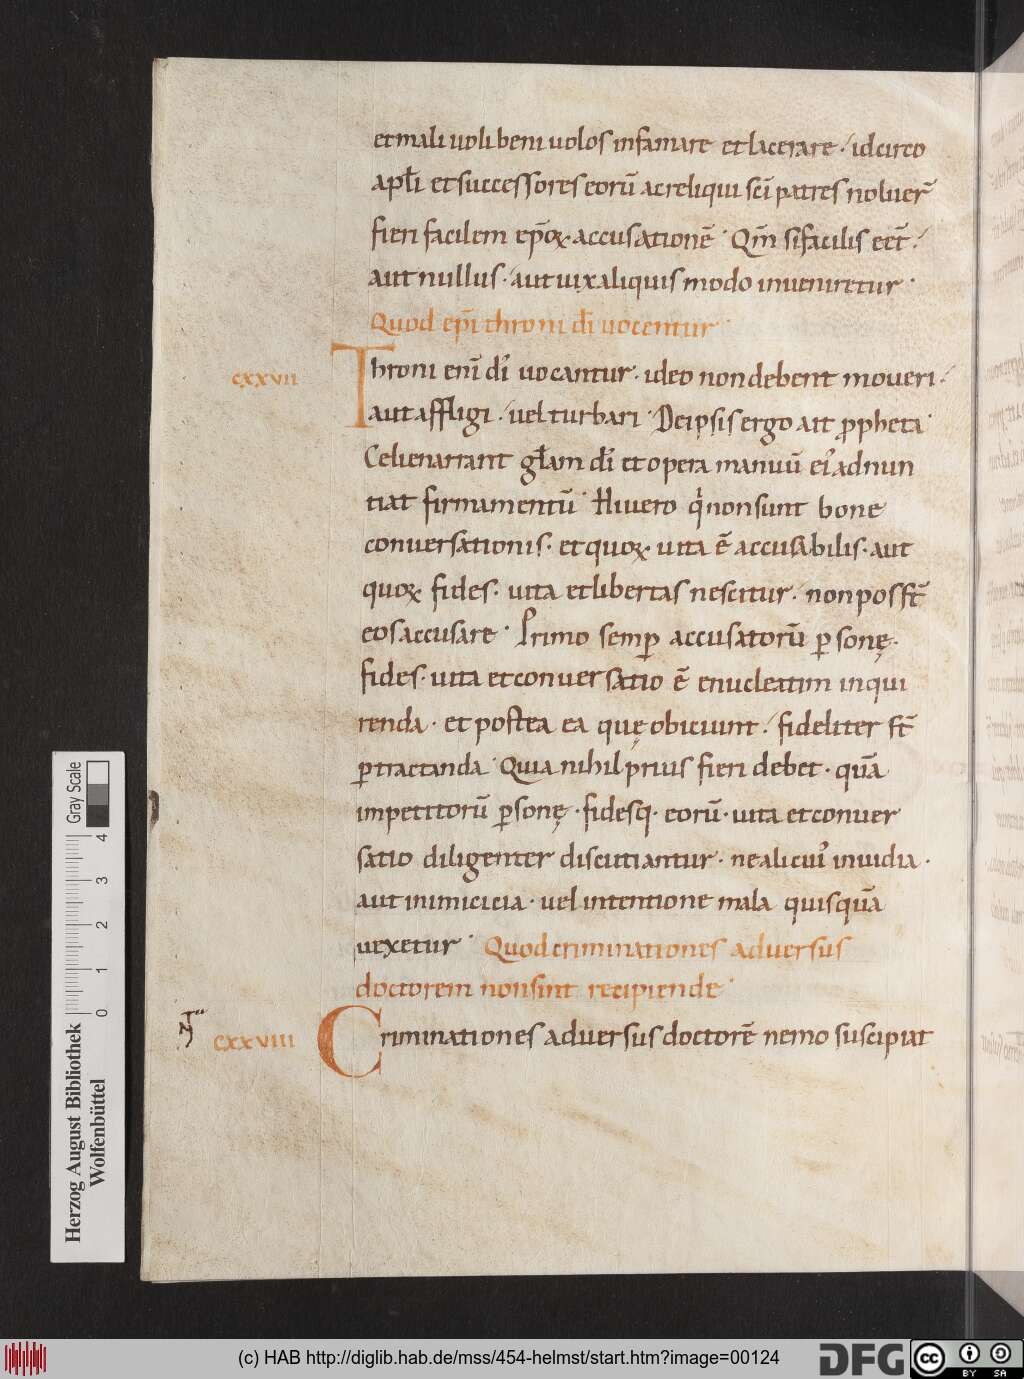 et mali uoli beniuolos infamare et lacerare · idcirco
apl̄i et successores eorū ac reliqui sc̄i patres noluer̄
fieri facilem ep̄oꝝ accusationē · Qm̄ si facilis eēt ·
aut nullus · aut uix aliquis modo inueniretur ·
Quod ep̄i throni dī uocentur ·
cxxvii Throni eni᷒ dī uocantur · ideo non debent moueri ·
aut affligi · uel turbari · De ipsis ergo ait ꝓpheta ·
Celi enarrant gl̄am dī et opera manuū ei᷒ adnun
tiat firmamentū · Illi uero qͥ non sunt bone
conuersationis · et quoꝝ uita ē accusabilis · aut
quoꝝ fides · uita et libertas nescitur · non possт̄
eos accusare · Primo semꝑ accusatorū ꝑsonę ·
fides · uita et conuersatio ē enucleatim inqui
renda · et postea ea quę obiciunt · fideliter st̄
ꝑtractanda · Quia nihil prius fieri debet · quā
impetitorū ꝑsonę · fidesq· eorū · uita et conuer
satio diligenter discutiantur · ne alicui᷒ inuidia ·
aut inimicicia · uel intentione mala quisquā
uexetur · Quod criminationes aduersus
doctorem non sint recipiende ·
cxxviii Criminationes aduersus doctorē nemo suscipiat
Gray Scale
0 1 2 3 4
Herzog August Bibliothek
Wolfenbüttel
(c) HAB http://diglib.hab.de/mss/454-helmst/start.htm?image=00124
DFG
cc BY SA